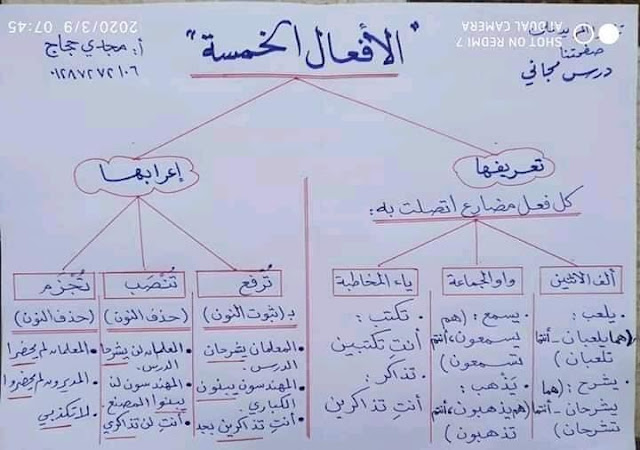 2020/9/9 07:45
SHOT ON REDMI 7
AI DUAL CAMERA
صفحتنا
درس مجاني
"الأفعال الخمسة"
أ: مجدي حجاج
٠١٢٨٧٢٧٢١٠٦
تعريفها
كل فعل مضارع اتصلت به:
ألف الاثنين
واو الجماعة
ياء المخاطبة
يلعب:
(هما يلعبان - أنتما
تلعبان)
يشرح: (هما
يشرحان - أنتما
تشرحان)
يسمع: (هم
يسمعون، أنتم
تسمعون)
يذهب:
(هم يذهبون، أنتم
تذهبون)
تكتب:
أنتِ تكتبين
تذاكر:
أنتِ تذاكرين
إعرابها
تُرْفَع
تُنْصَب
تُجْزَم
بـ (ثبوت النون)
(حذف النون)
(حذف النون)
المعلمان يشرحان
الدرس.
المهندسون يبنون
الكباري.
أنتِ تذاكرين بجد
المعلمان لن يشرحا
الدرس.
المهندسون لن
يبنوا المصنع.
أنتِ لن تذاكري
المعلمان لم يحضرا
المديرون لم يحضروا
لا تكذبي